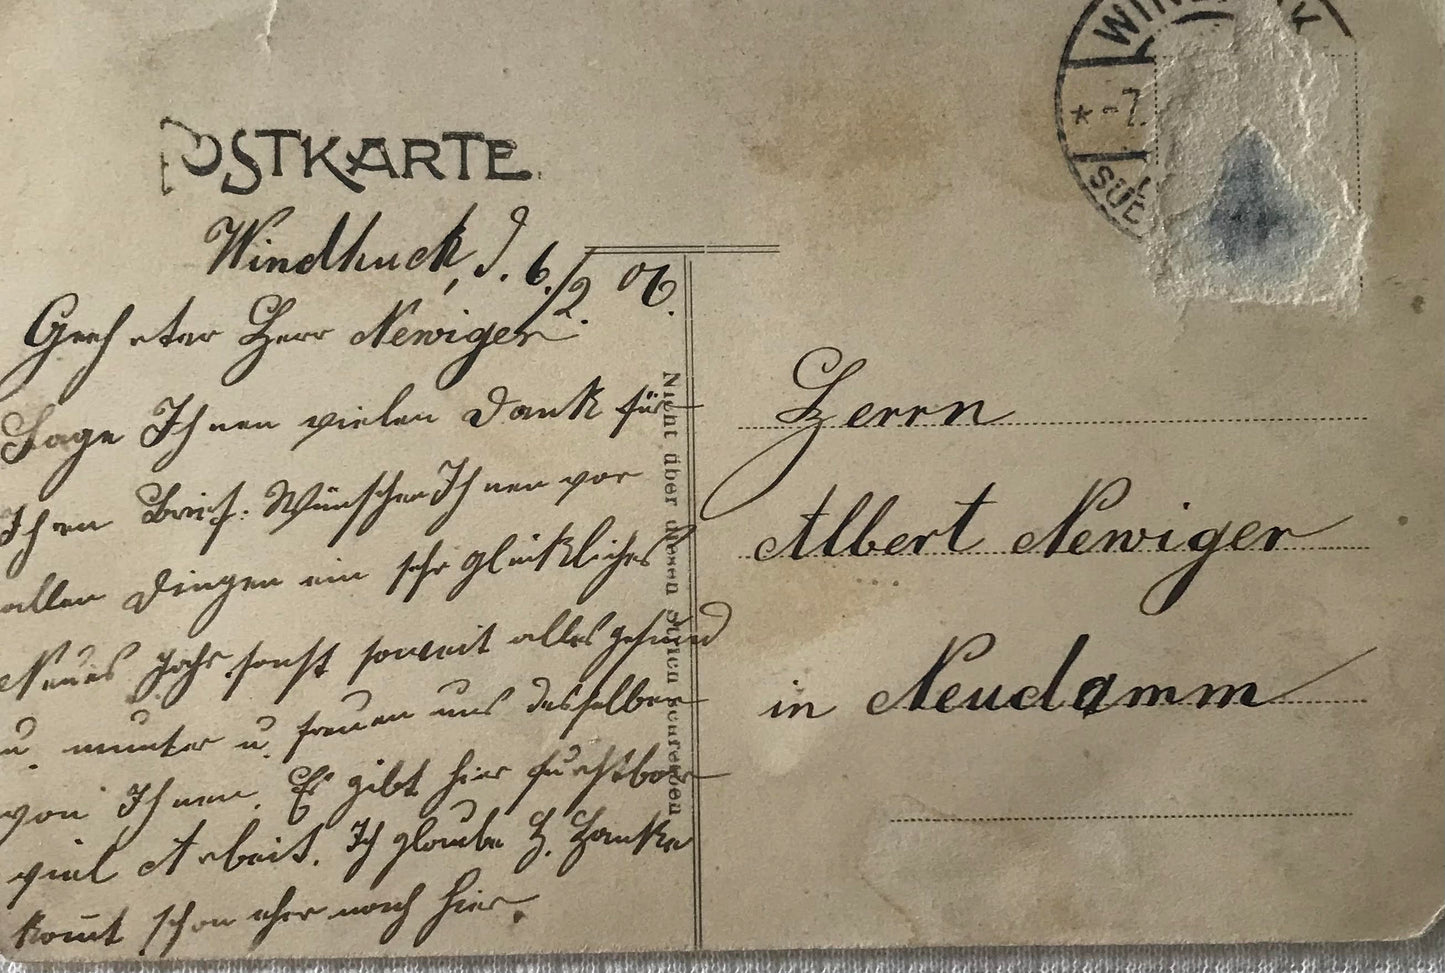 POSTKARTE.
Windhuck, d. 6./2. 06.
Geehrter Herr Newiger
Sage Ihnen vielen Dank für
Ihren Brief. Wünschen Ihnen vor
allen Dingen ein sehr glückliches
Neues Jahr sonst soweit alles gesund
u. munter u. freuen uns desselben
von Ihnen. Es gibt hier furchtbar
viel Arbeit. Ich glaube H. Hanke
kom̄t schon eher nach hier.
Nicht über diesen Strich schreiben
WIN UK
* -7.
SÜD
Herrn
Albert Newiger
in Neudamm